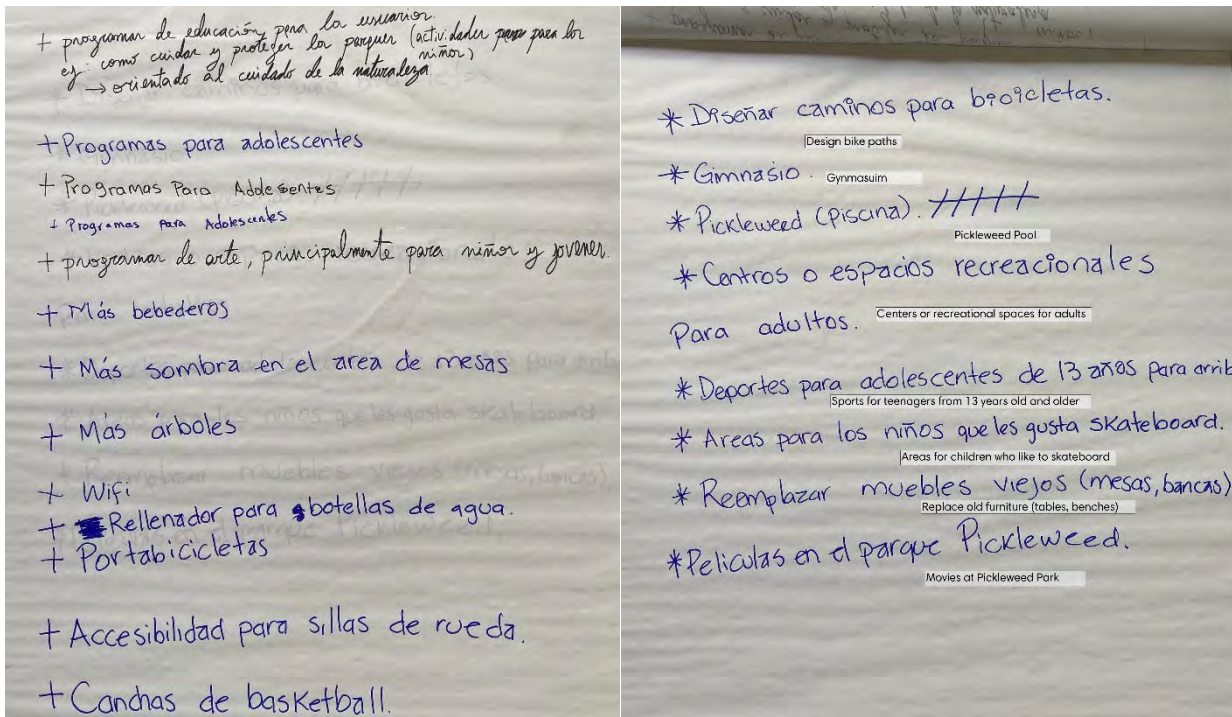 + programas de educación para los usuarios.
ej: como cuidar y proteger los parques (actividades para los
niños)
→ orientado al cuidado de la naturaleza
+ Programas para adolescentes
+ Programas Para Adolesentes
+ Programas Para Adolescentes
+ programas de arte, principalmente para niños y jovenes.
+ Más bebederos
+ Más sombra en el area de mesas
+ Más árboles
+ Wifi
+ Rellenador para botellas de agua.
+ Portabicicletas
+ Accesibilidad para sillas de rueda.
+ Canchas de basketball.
* Diseñar caminos para bicicletas.
Design bike paths
* Gimnasio.
Gynmasuim
* Pickleweed (Piscina).
Pickleweed Pool
* Centros o espacios recreacionales
Centers or recreational spaces for adults
Para adultos.
* Deportes para adolescentes de 13 años para arrib
Sports for teenagers from 13 years old and older
* Areas para los niños que les gusta skateboard.
Areas for children who like to skateboard
* Reemplazar muebles viejos (mesas, bancas)
Replace old furniture (tables, benches)
* Peliculas en el parque Pickleweed.
Movies at Pickleweed Park